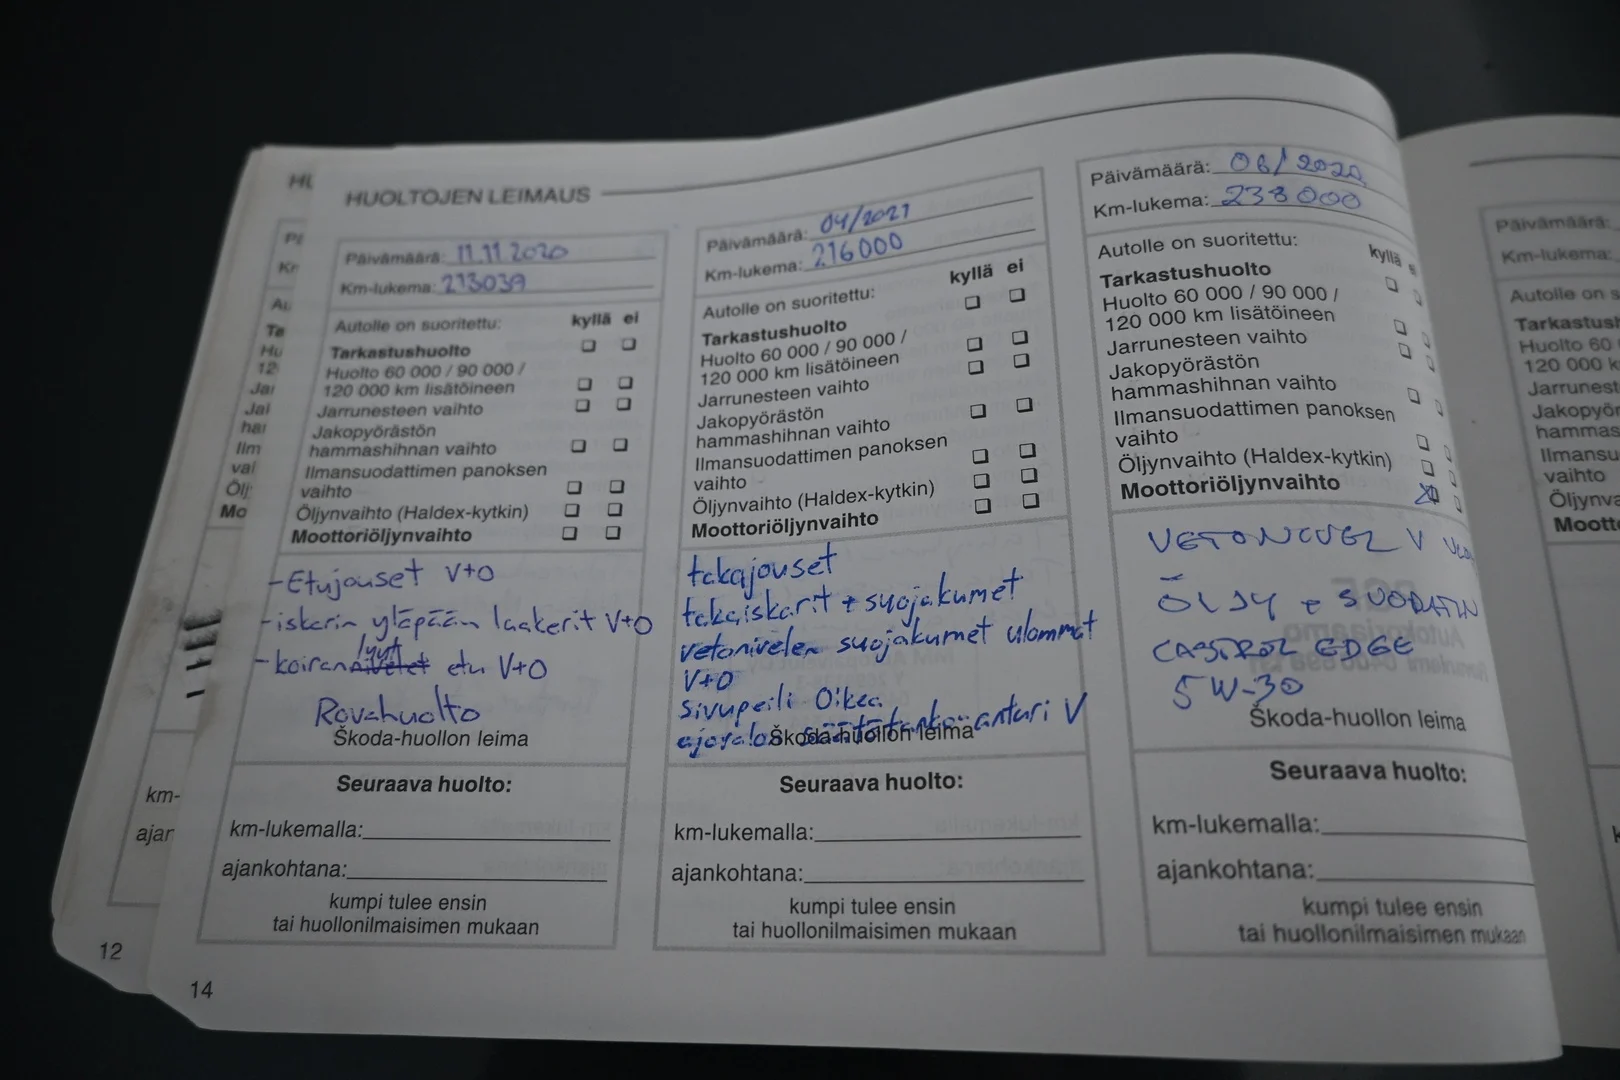 HUOLTOJEN LEIMAUS
Päivämäärä: 11.11.2020
Km-lukema: 213039
Autolle on suoritettu: kyllä ei
Tarkastushuolto
Huolto 60 000 / 90 000 /
120 000 km lisätöineen
Jarrunesteen vaihto
Jakopyörästön
hammashihnan vaihto
Ilmansuodattimen panoksen
vaihto
Öljynvaihto (Haldex-kytkin)
Moottoriöljynvaihto
-Etujouset V+O
-iskarin yläpään laakerit V+O
luut
-koirannivelet etu V+O
Rovahuolto
Škoda-huollon leima
Seuraava huolto:
km-lukemalla:
ajankohtana:
kumpi tulee ensin
tai huollonilmaisimen mukaan
14
Päivämäärä: 04/2021
Km-lukema: 216000
Autolle on suoritettu: kyllä ei
Tarkastushuolto
Huolto 60 000 / 90 000 /
120 000 km lisätöineen
Jarrunesteen vaihto
Jakopyörästön
hammashihnan vaihto
Ilmansuodattimen panoksen
vaihto
Öljynvaihto (Haldex-kytkin)
Moottoriöljynvaihto
takajouset
takaiskarit + suojakumet
vetonivelen suojakumet ulommat
V+O
Sivupeili Oikea
anturi V
Škoda-huollon leima
Seuraava huolto:
km-lukemalla:
ajankohtana:
kumpi tulee ensin
tai huollonilmaisimen mukaan
Päivämäärä: 06/2022
Km-lukema: 238000
Autolle on suoritettu: kyllä
Tarkastushuolto
Huolto 60 000 / 90 000 /
120 000 km lisätöineen
Jarrunesteen vaihto
Jakopyörästön
hammashihnan vaihto
Ilmansuodattimen panoksen
vaihto
Öljynvaihto (Haldex-kytkin)
Moottoriöljynvaihto
VETONIVEL V
ÖLJY + SUODATIN
CASTROL EDGE
5W-30
Škoda-huollon leima
Seuraava huolto:
km-lukemalla:
ajankohtana:
kumpi tulee ensin
tai huollonilmaisimen mukaan
12
km-
ajan
Päivämäärä:
Km-lukema:
Autolle on s
Tarkastush
Huolto 60
120 000 k
Jarrunest
Jakopyör
hammas
Ilmansu
vaihto
Öljynva
Mootto